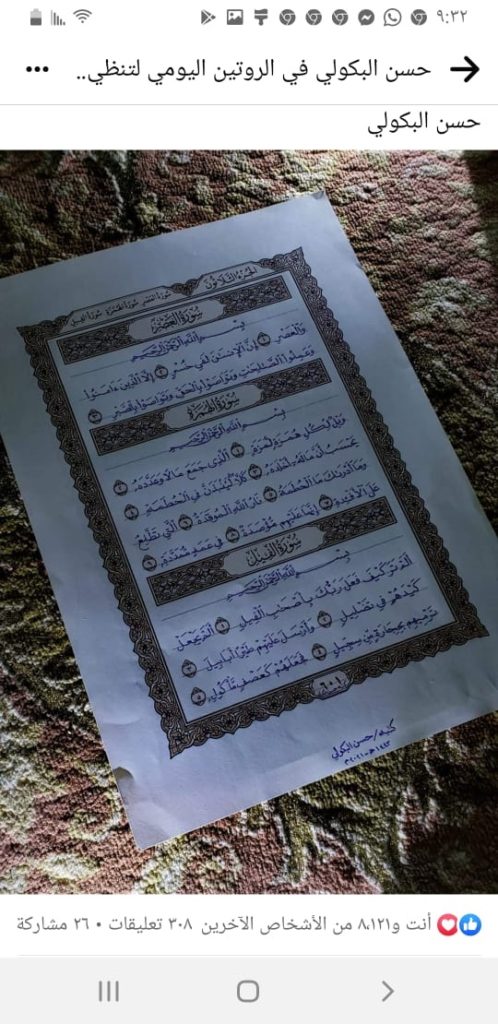 ٩:٣٢
حسن البكولي في الروتين اليومي لتنظي..
حسن البكولي
الجزء الثلاثون
سورة العصر سورة الهمزة سورة الفيل
سُورَةُ العَصْرِ
بِسْمِ اللَّهِ الرَّحْمَنِ الرَّحِيمِ
وَالْعَصْرِ ١ إِنَّ الْإِنسَٰنَ لَفِي خُسْرٍ ٢ إِلَّا الَّذِينَ ءَامَنُوا
وَعَمِلُوا الصَّٰلِحَٰتِ وَتَوَاصَوْا بِالْحَقِّ وَتَوَاصَوْا بِالصَّبْرِ ٣
سُورَةُ الهُمَزَةِ
بِسْمِ اللَّهِ الرَّحْمَنِ الرَّحِيمِ
وَيْلٌ لِّكُلِّ هُمَزَةٍ لُّمَزَةٍ ١ الَّذِي جَمَعَ مَالًا وَعَدَّدَهُ ٢
يَحْسَبُ أَنَّ مَالَهُ أَخْلَدَهُ ٣ كَلَّا لَيُنبَذَنَّ فِي الْحُطَمَةِ ٤
وَمَا أَدْرَىٰكَ مَا الْحُطَمَةُ ٥ نَارُ اللَّهِ الْمُوقَدَةُ ٦ الَّتِي تَطَّلِعُ
عَلَى الْأَفْـِٔدَةِ ٧ إِنَّهَا عَلَيْهِم مُّؤْصَدَةٌ ٨ فِي عَمَدٍ مُّمَدَّدَةٍ ٩
سُورَةُ الفِيلِ
بِسْمِ اللَّهِ الرَّحْمَنِ الرَّحِيمِ
أَلَمْ تَرَ كَيْفَ فَعَلَ رَبُّكَ بِأَصْحَٰبِ الْفِيلِ ١ أَلَمْ يَجْعَلْ
كَيْدَهُمْ فِي تَضْلِيلٍ ٢ وَأَرْسَلَ عَلَيْهِمْ طَيْرًا أَبَابِيلَ ٣
تَرْمِيهِم بِحِجَارَةٍ مِّن سِجِّيلٍ ٤ فَجَعَلَهُمْ كَعَصْفٍ مَّأْكُولٍ ٥
٦٠١
كتبه/حسن البكولي
١٤٤٢هـ-٢٠٢١م
أنت و٨،١٢١ من الأشخاص الآخرين ٣٠٨ تعليقات • ٢٦ مشاركة